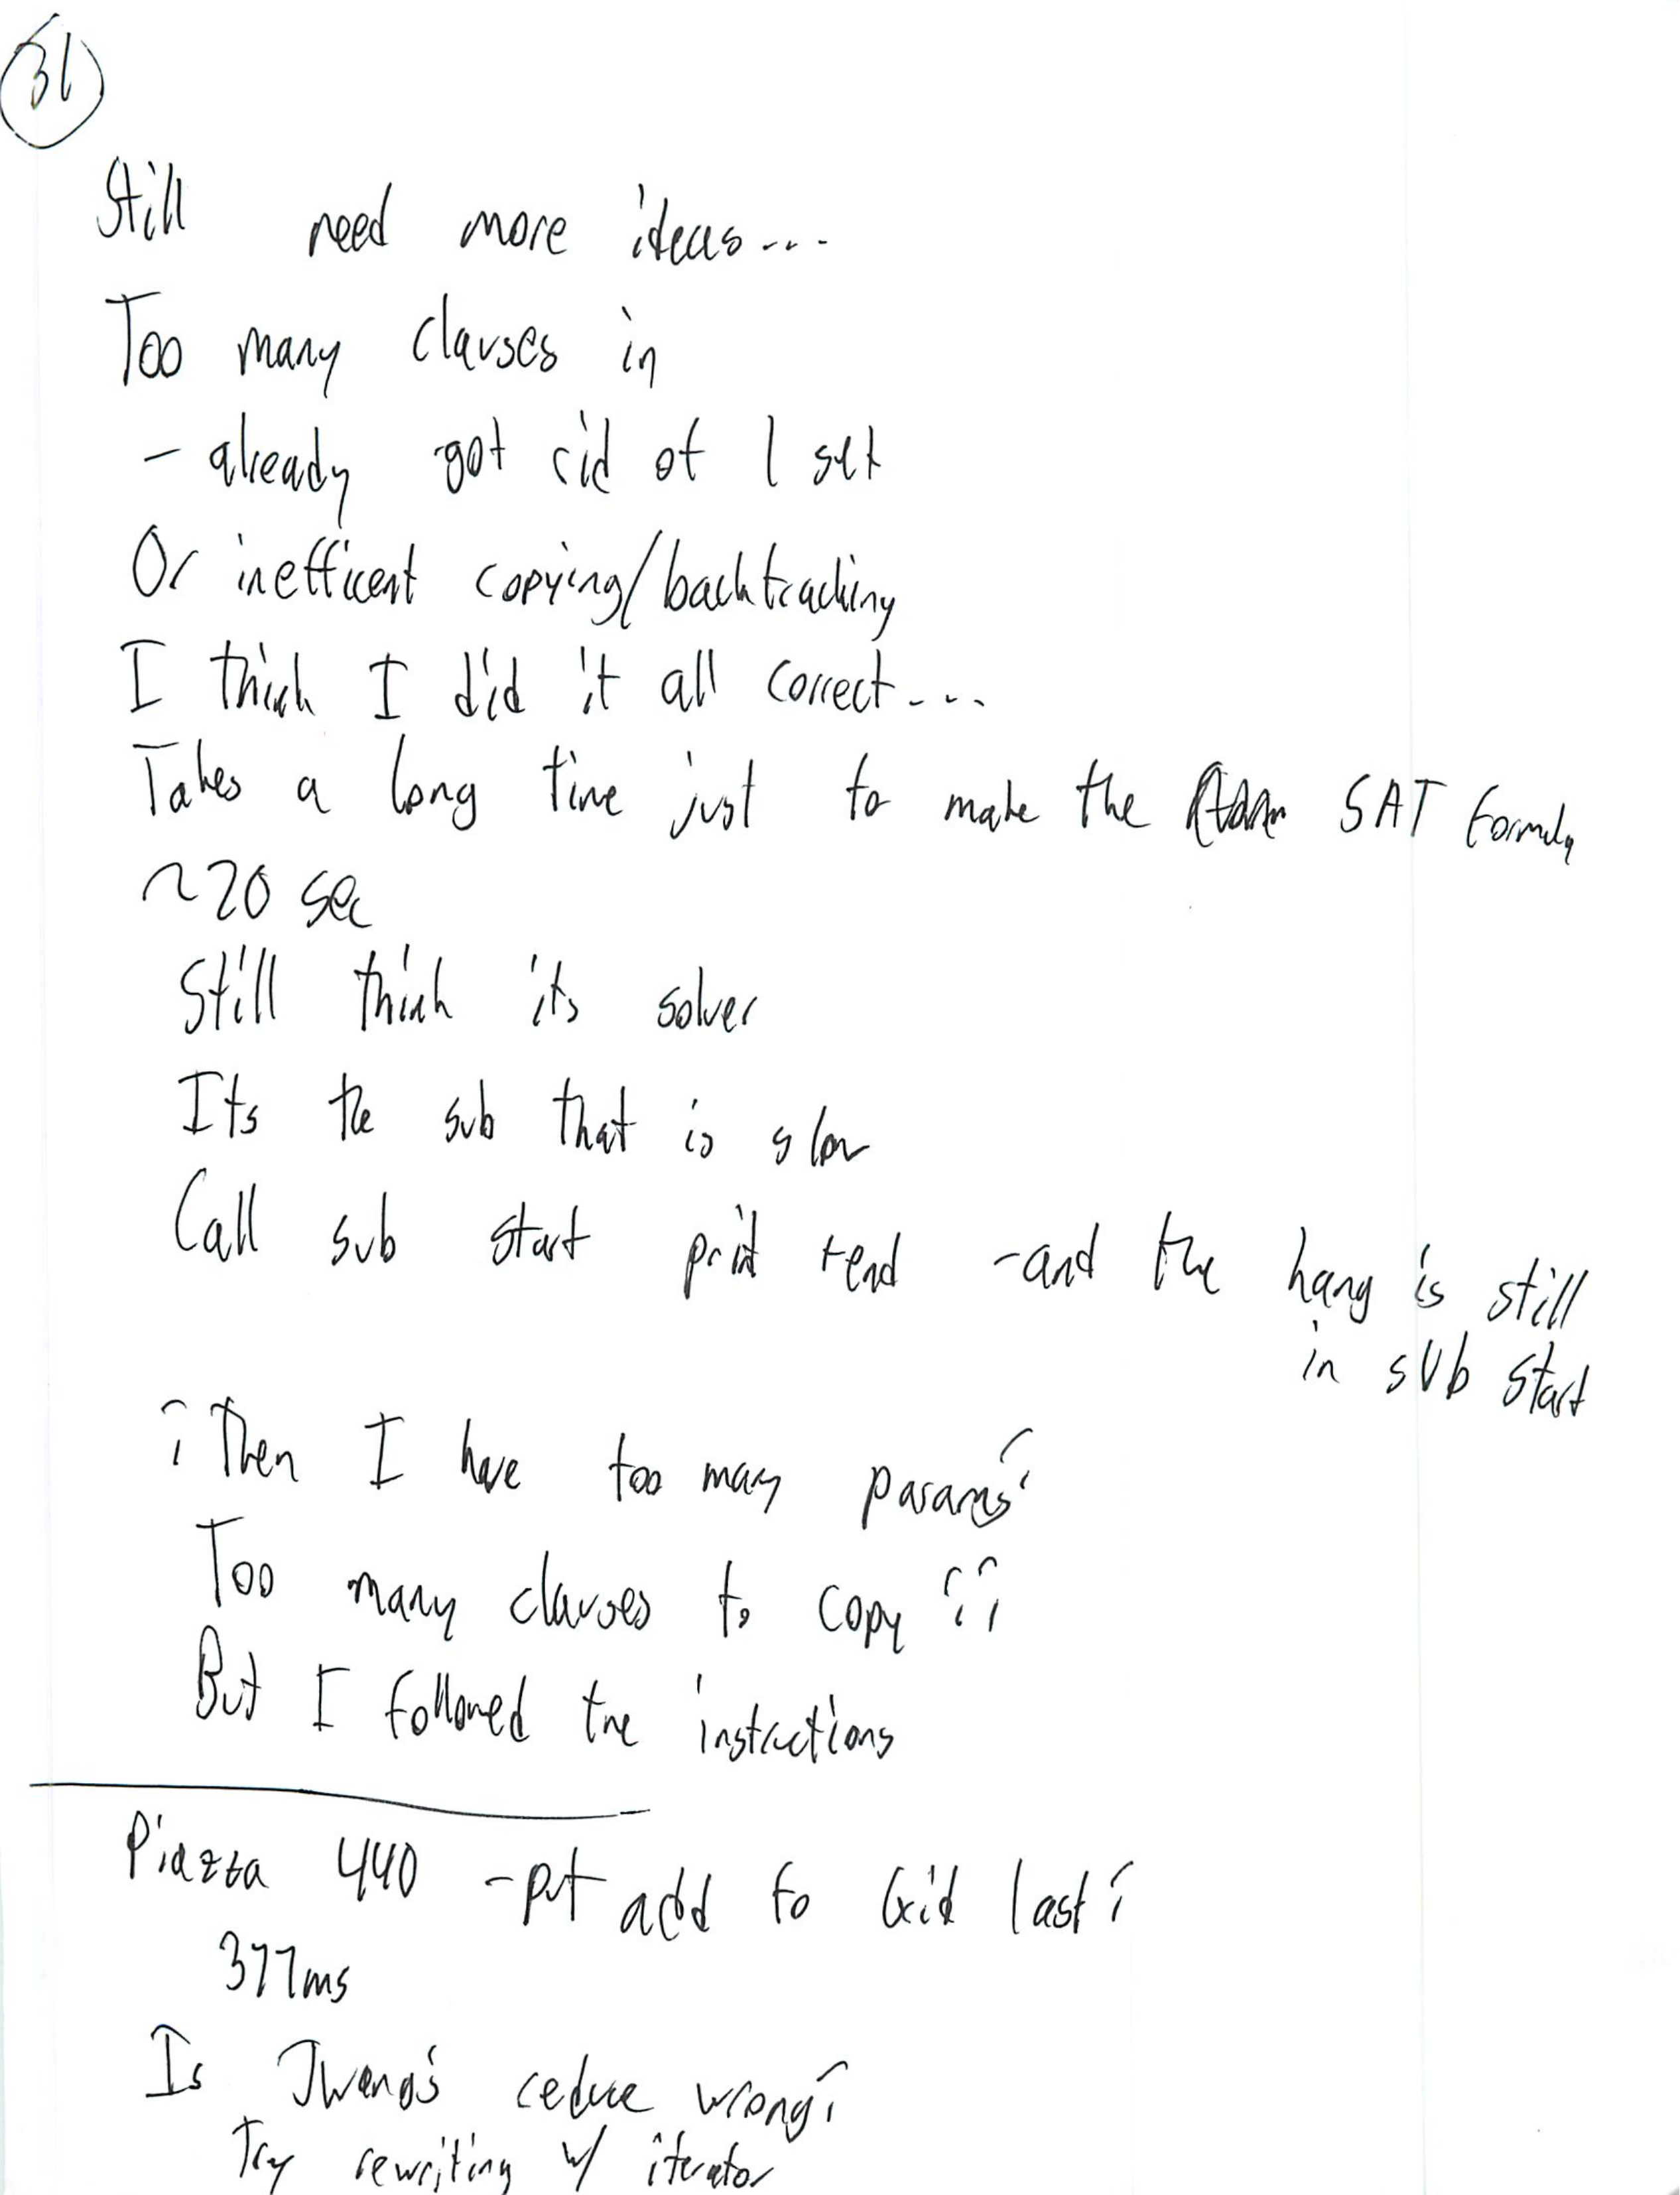 31
Still need more ideas...
Too many clauses in
- already got rid of 1 set
Or inefficent copying/backtracking
I think I did it all correct...
Takes a long time just to make the SAT formula
~20 sec
Still think its solver
Its the sub that is slow
Call sub start print + end - and the hang is still
in sub start
? Then I have too many params?
Too many clauses to copy ??
But I followed the instructions
Piazza 440 - put add to Grid last?
377ms
Is Jwang's reduce wrong?
Try rewriting w/ iterator